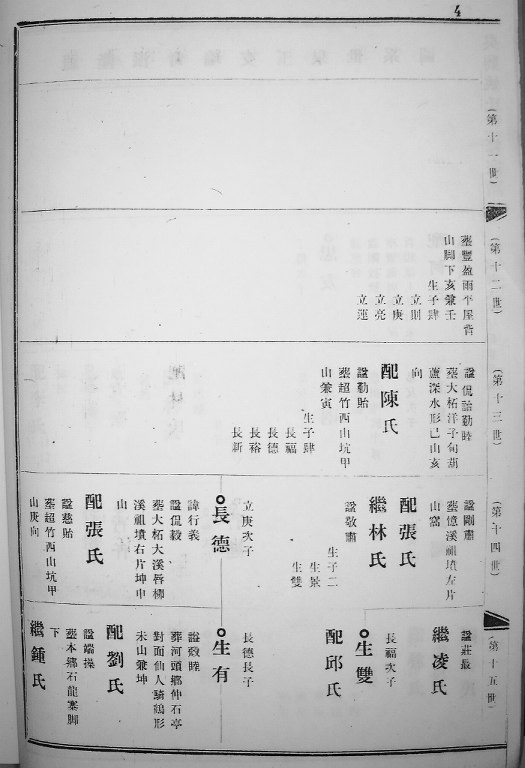 4
(第十一世)
(第十二世)
葬豐盈雨平屋背
山脚下亥兼壬
生子肆
立則
立庚
立亮
立運
(第十三世)
諡侃詒勤睦
葬大柘洋子甸葫
蘆深水形巳山亥
向
配陳氏
諡勤貽
葬超竹西山坑甲
山兼寅
生子肆
長福
長德
長裕
長新
(第十四世)
諡剛肅
葬憶溪祖墳左片
山窩
配張氏
繼林氏
諡敬肅
生子二
生景
生雙
立庚次子
長德
諱行義
諡侃毅
葬大柘大溪唇柳
溪祖墳右片坤申
山
配張氏
諡慈貽
葬超竹西山坑甲
山庚向
(第十五世)
諡莊最
繼凌氏
長福次子
生雙
配邱氏
長德長子
生有
諡毅睦
葬河頭鄉仲石亭
對面仙人騎鶴形
未山兼坤
配劉氏
諡端操
葬本鄉石龍寨脚
下
繼鍾氏